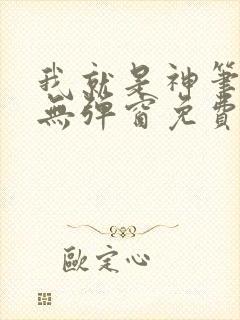 我就是神筆
無彈窗免費
歐定心